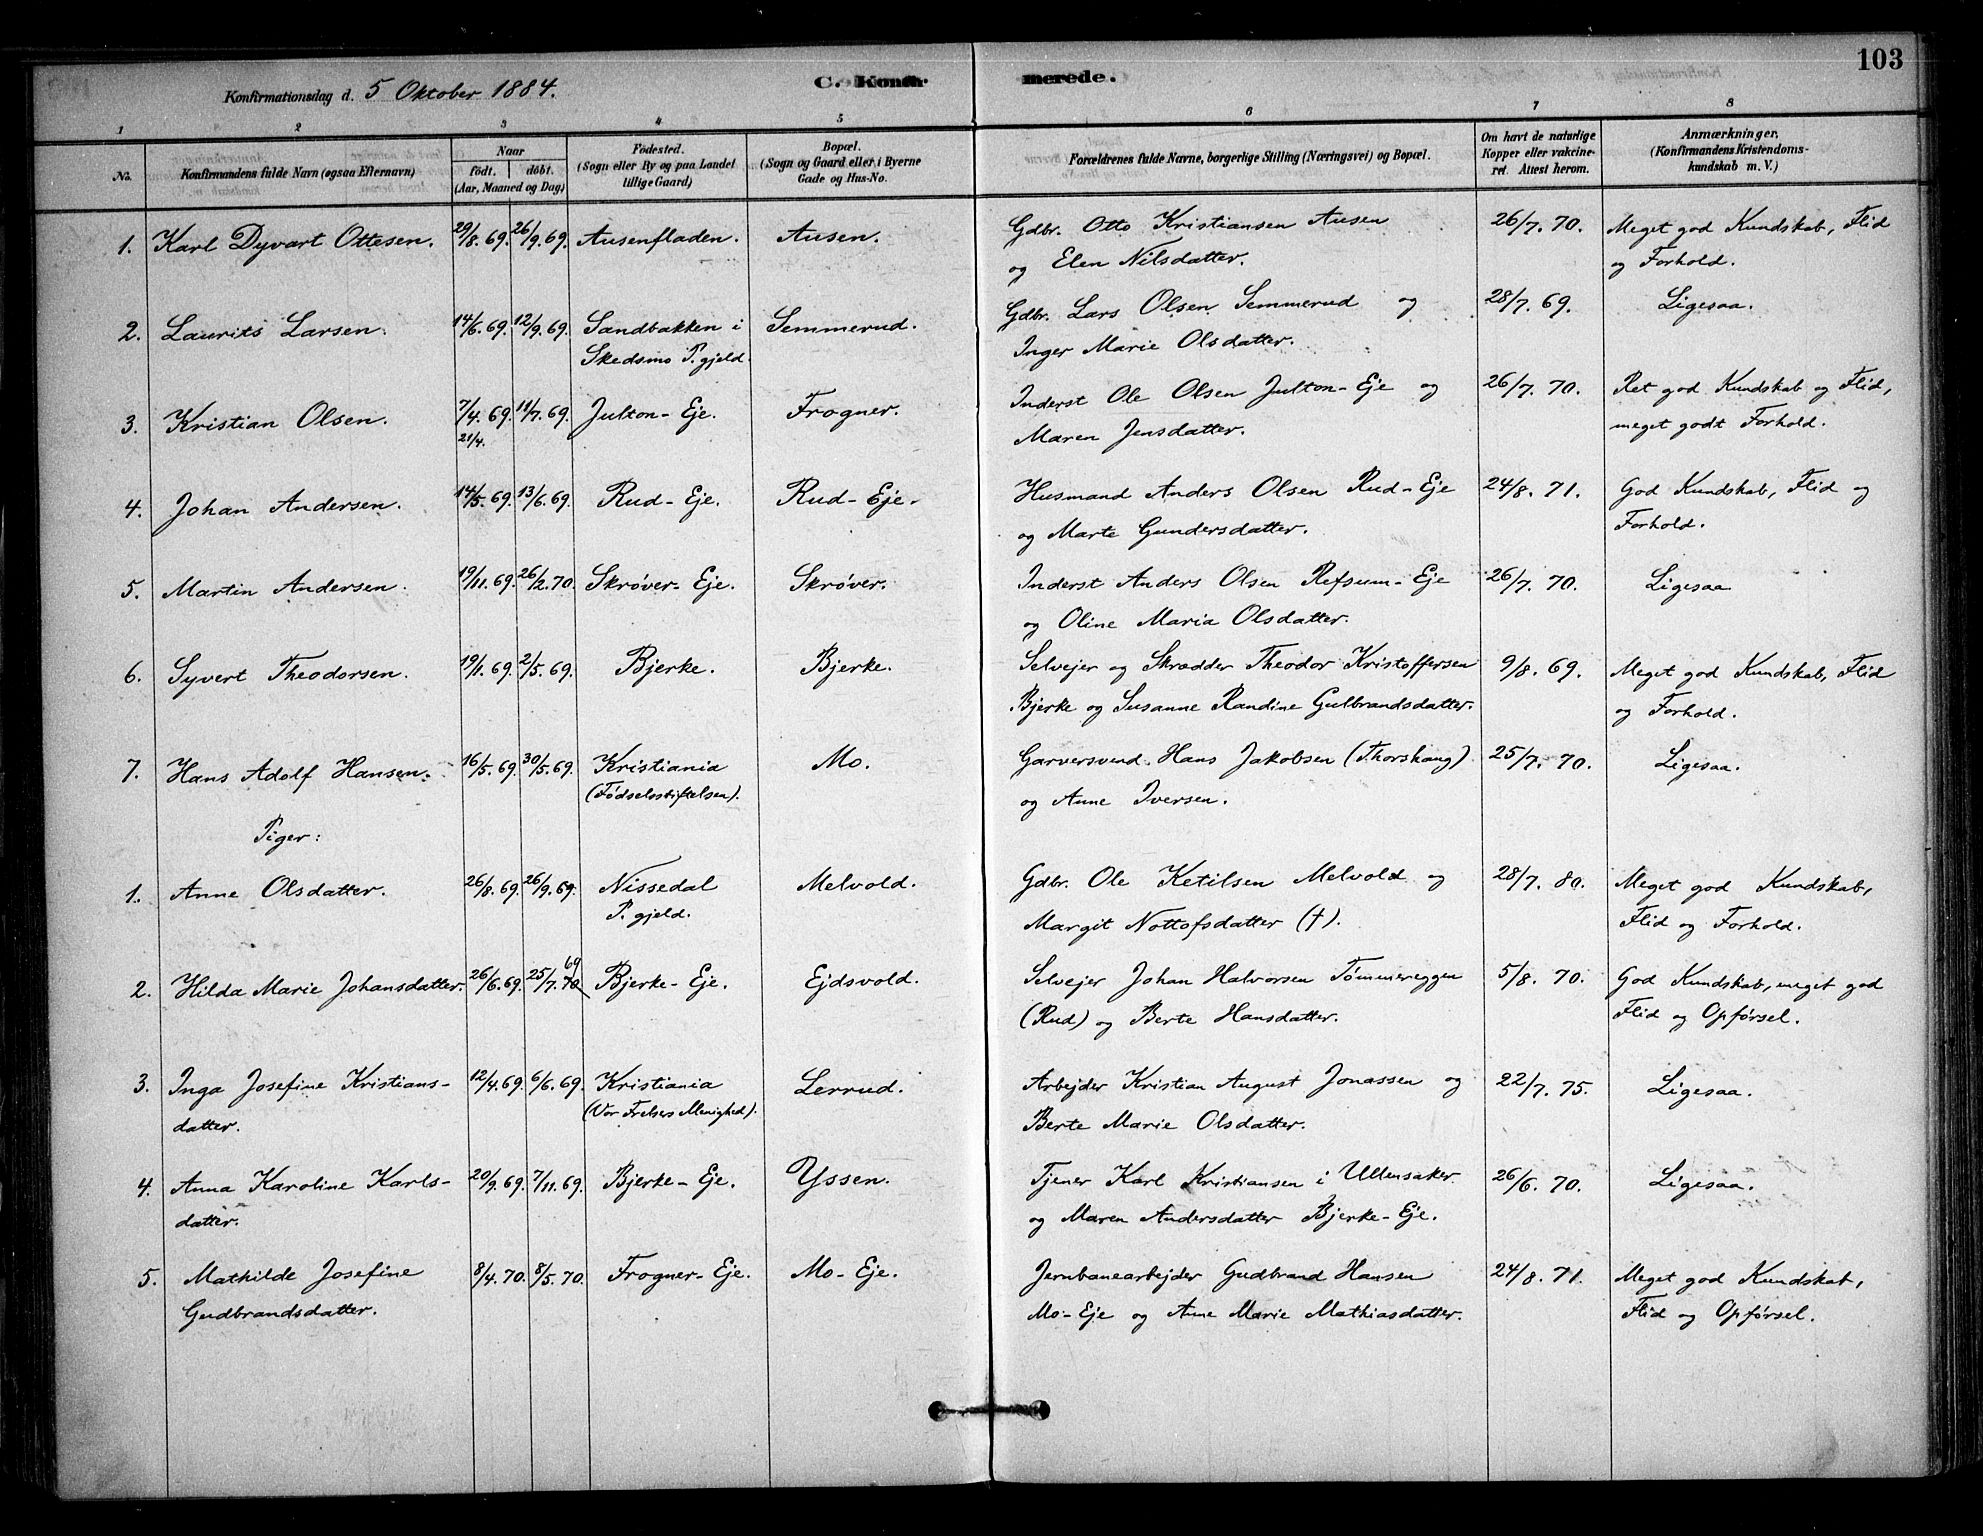 103
Konfirmationsdag d. 5 Oktober 1884.
C. Konfirmerede.
1 2 3 4 5 6 7 8
No.
Konfirmandens fulde Navn (ogsaa Efternavn)
Naar
født. døbt.
(Aar, Maaned og Dag)
Fødested.
(Sogn eller By og paa Landet
tillige Gaard)
Bopæl.
(Sogn og Gaard eller i Byerne
Gade og Hus-No.
Forældrenes fulde Navne, borgerlige Stilling (Næringsvei) og Bopæl.
Om havt de naturlige
Kopper eller vakcine-
ret. Attest herom.
Anmærkninger.
(Konfirmandens Kristendoms-
kundskab m. V.)
1. Karl Dyvart Ottesen. 29/8. 69. 26/9. 69. Ausenfladen. Ausen. Gdbr. Otto Kristiansen Ausen 26/7. 70. Meget god Kundskab, Flid
og Elen Nilsdatter. og Forhold.
2. Laurits Larsen. 14/6. 69. 12/9. 69. Sandbakken i Semmerud. Gdbr. Lars Olsen Semmerud og 28/7. 69. Ligesaa.
Skedsmo P.gjeld. Inger Marie Olsdatter.
3. Kristian Olsen. 7/4. 69. 11/7. 69. Julton-Eje. Frogner. Inderst Ole Olsen Julton-Eje og 26/7. 70. Ret god Kundskab og Flid,
21/4. Maren Jensdatter. meget godt Forhold.
4. Johan Andersen. 14/5. 69. 13/6. 69. Rud-Eje. Rud-Eje. Husmand Anders Olsen Rud-Eje 24/8. 71. God Kundskab, Flid og
og Marte Gundersdatter. Forhold.
5. Martin Andersen. 19/11. 69. 26/2. 70. Skrøver-Eje. Skrøver. Inderst Anders Olsen Refsum-Eje 26/7. 70. Ligesaa
og Oline Maria Olsdatter.
6. Syvert Theodorsen. 19/1. 69. 2/5. 69. Bjerke. Bjerke. Selvejer og Skrædder Theodor Kristoffersen 9/8. 69. Meget god Kundskab, Flid
Bjerke og Susanne Randine Gulbrandsdatter. og Forhold.
7. Hans Adolf Hansen. 16/5. 69. 30/5. 69. Kristiania Mo. Garversvend Hans Jakobsen (Thorshaug) 25/7. 70. Ligesaa.
(Fødselsstiftelsen). og Anne Iversen.
Piger:
1. Anne Olsdatter. 26/8. 69. 26/9. 69. Nissedal Melvold. Gdbr. Ole Ketilsen Melvold og 28/7. 80. Meget god Kundskab,
P.gjeld. Margit Nottofsdatter (†). Flid og Forhold.
2. Hilda Marie Johansdatter. 26/6. 69. 25/7. 70 69 Bjerke-Eje. Ejdsvold. Selvejer Johan Halvorsen Tømmereggen 5/8. 70. God Kundskab, meget god
(Rud) og Berte Hansdatter. Flid og Opførsel.
3. Inga Josefine Kristians- 12/4. 69. 6/6. 69. Kristiania Lerrud. Arbejder Kristian August Jonassen og 22/7. 75. Ligesaa.
datter. (Vor Frelsers Menighed). Berte Marie Olsdatter.
4. Anna Karoline Karls- 20/9. 69. 7/11. 69. Bjerke-Eje. Yssen. Tjener Karl Kristiansen i Ullensaker 26/6. 70. Ligesaa.
datter. og Maren Andersdatter Bjerke-Eje.
5. Mathilde Josefine 8/4. 70. 8/5. 70. Frogner-Eje. Mo-Eje. Jernbanearbejder Gudbrand Hansen 24/8. 71. Meget god Kundskab,
Gudbrandsdatter. Mo-Eje og Anne Marie Mathiasdatter. Flid og Opførsel.